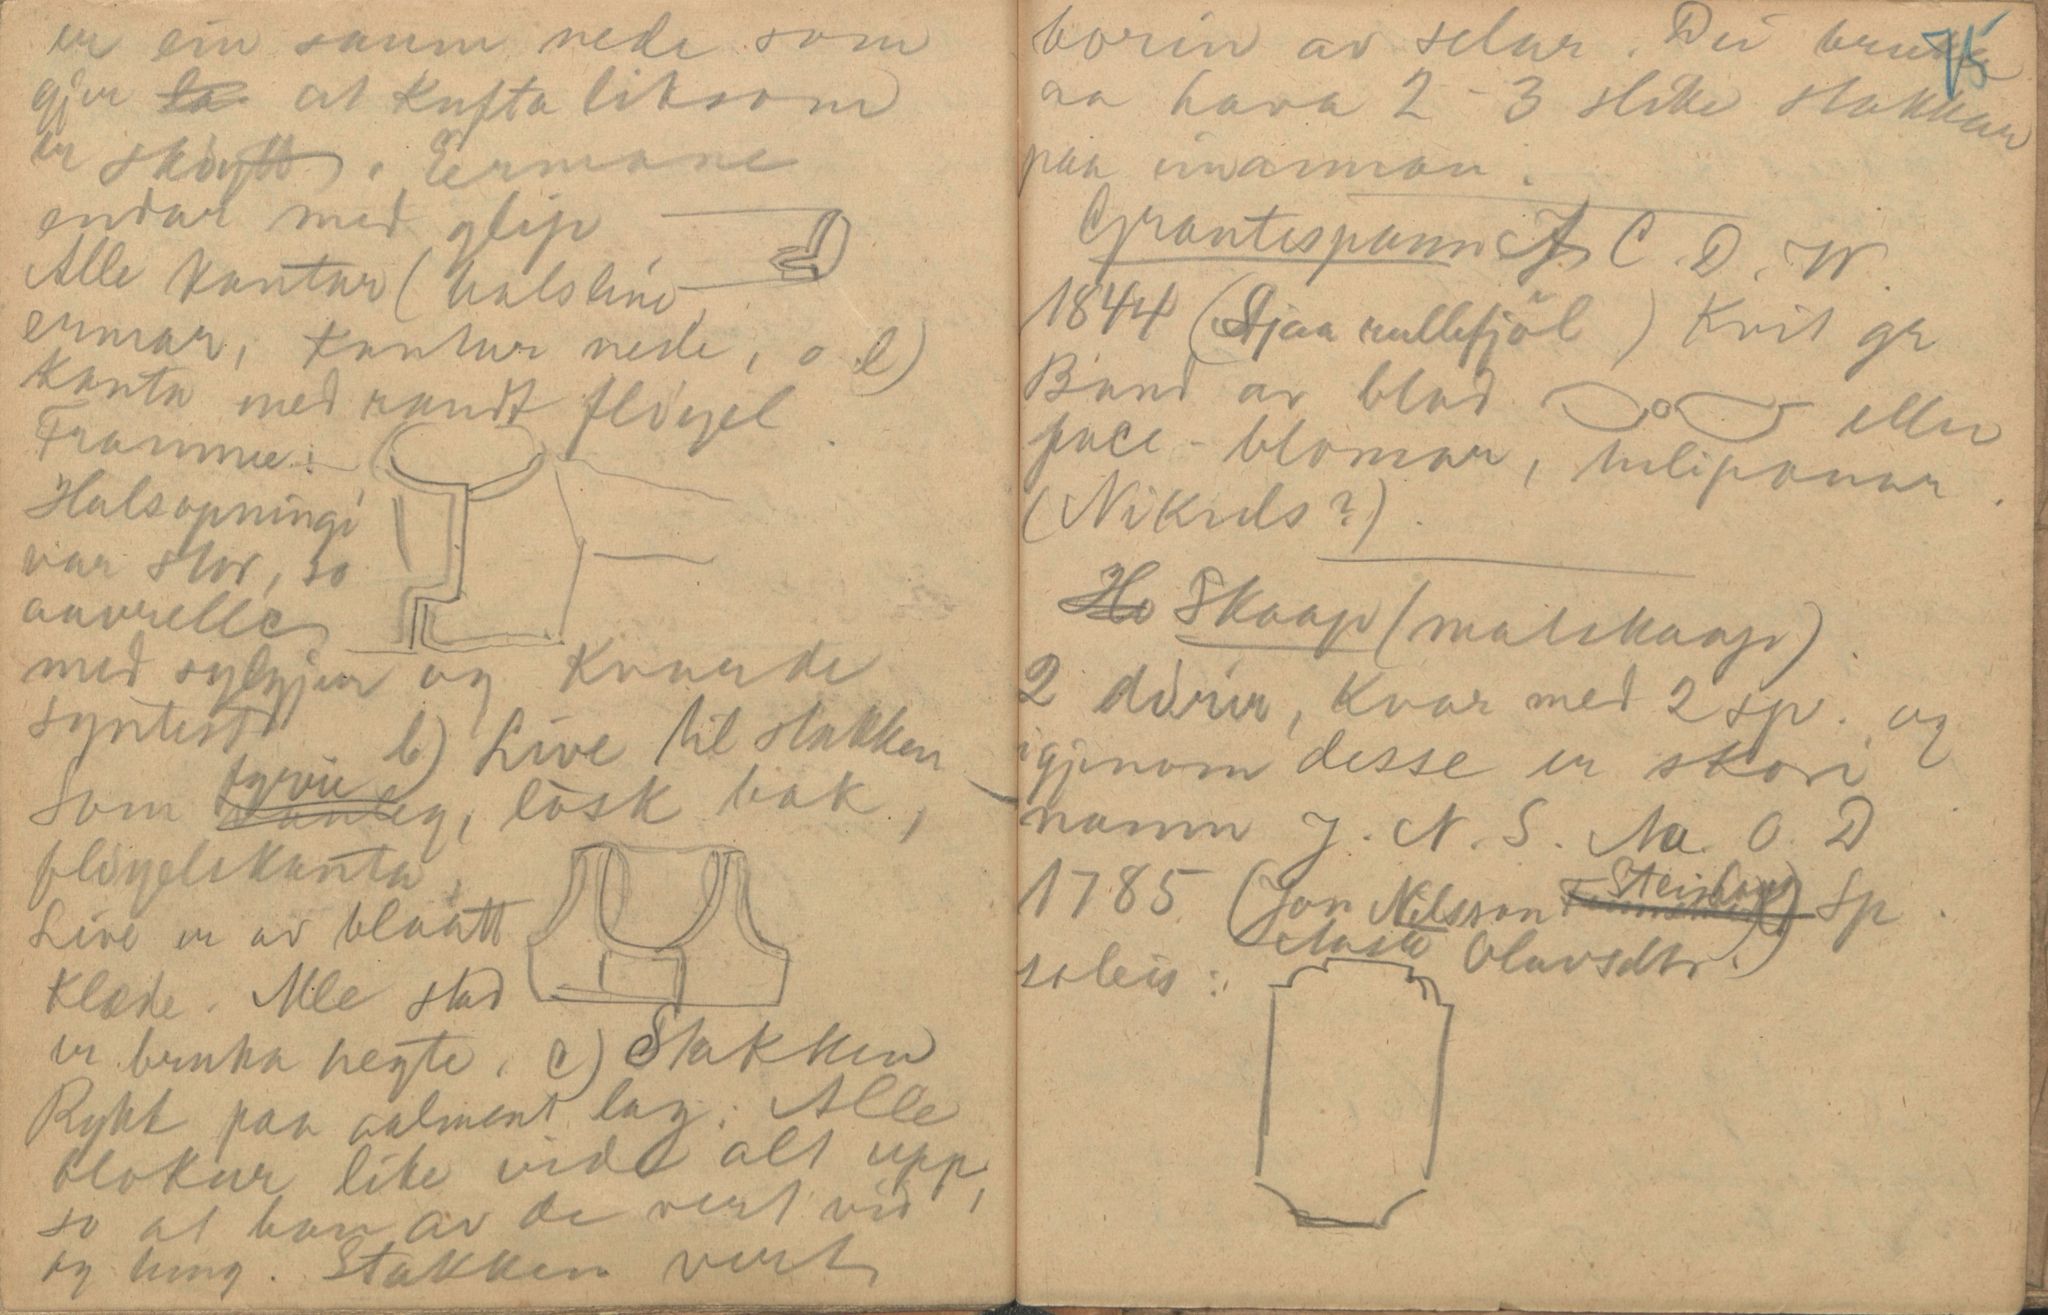 er ein saum nede som
gjer at Kufta liksom
er skøytt. Ermane
endar med glip
Alle kantar (halsline,
ermar, kantar nede, o l)
Kanta med randt fløyel.
Framme:
Halsopningi
var stor, so
med sylgjur og Kvarde
b) Live til stakken
Som fyrr, løsk bak,
fløyelskanta,
Live er av blaatt
Klæde. Alle stad
er bruka hegte. c) Stakken
Rykt paa aalment lag. Alle
blokur like vide alt upp,
so at han av de vert vid
og tung. Stakken vert
borin av selar. Dei bruka
75
aa hava 2-3 slike stakkar
paa einannan.
Grautespann C. D. W.
1844 (Sjaa rullefjöl) Kvit gr
Band av blad eller
face-blomar, tulipanar.
(Nikuls?).
Ho Skaap (matskaap).
2 dører, kvar med 2 sp. og
igjenom desse er skori
namn J. N. S. Ma. O. D
1785 (Jon Nilsson Sp.
Olavsdtr.)
soleis: